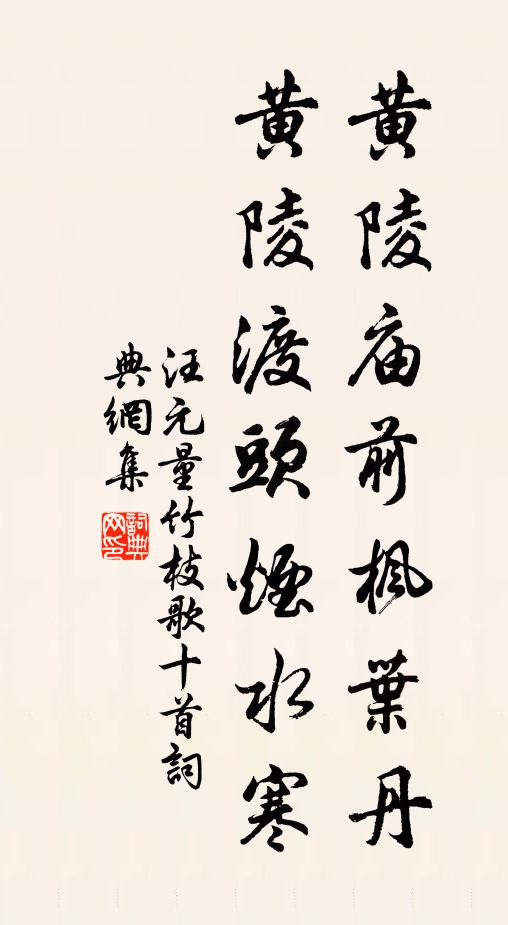 黄陵庙前枫葉丹
黄陵渡頭煙水寒
汪元量竹枝歌十首詞
典網集
詞典
网印